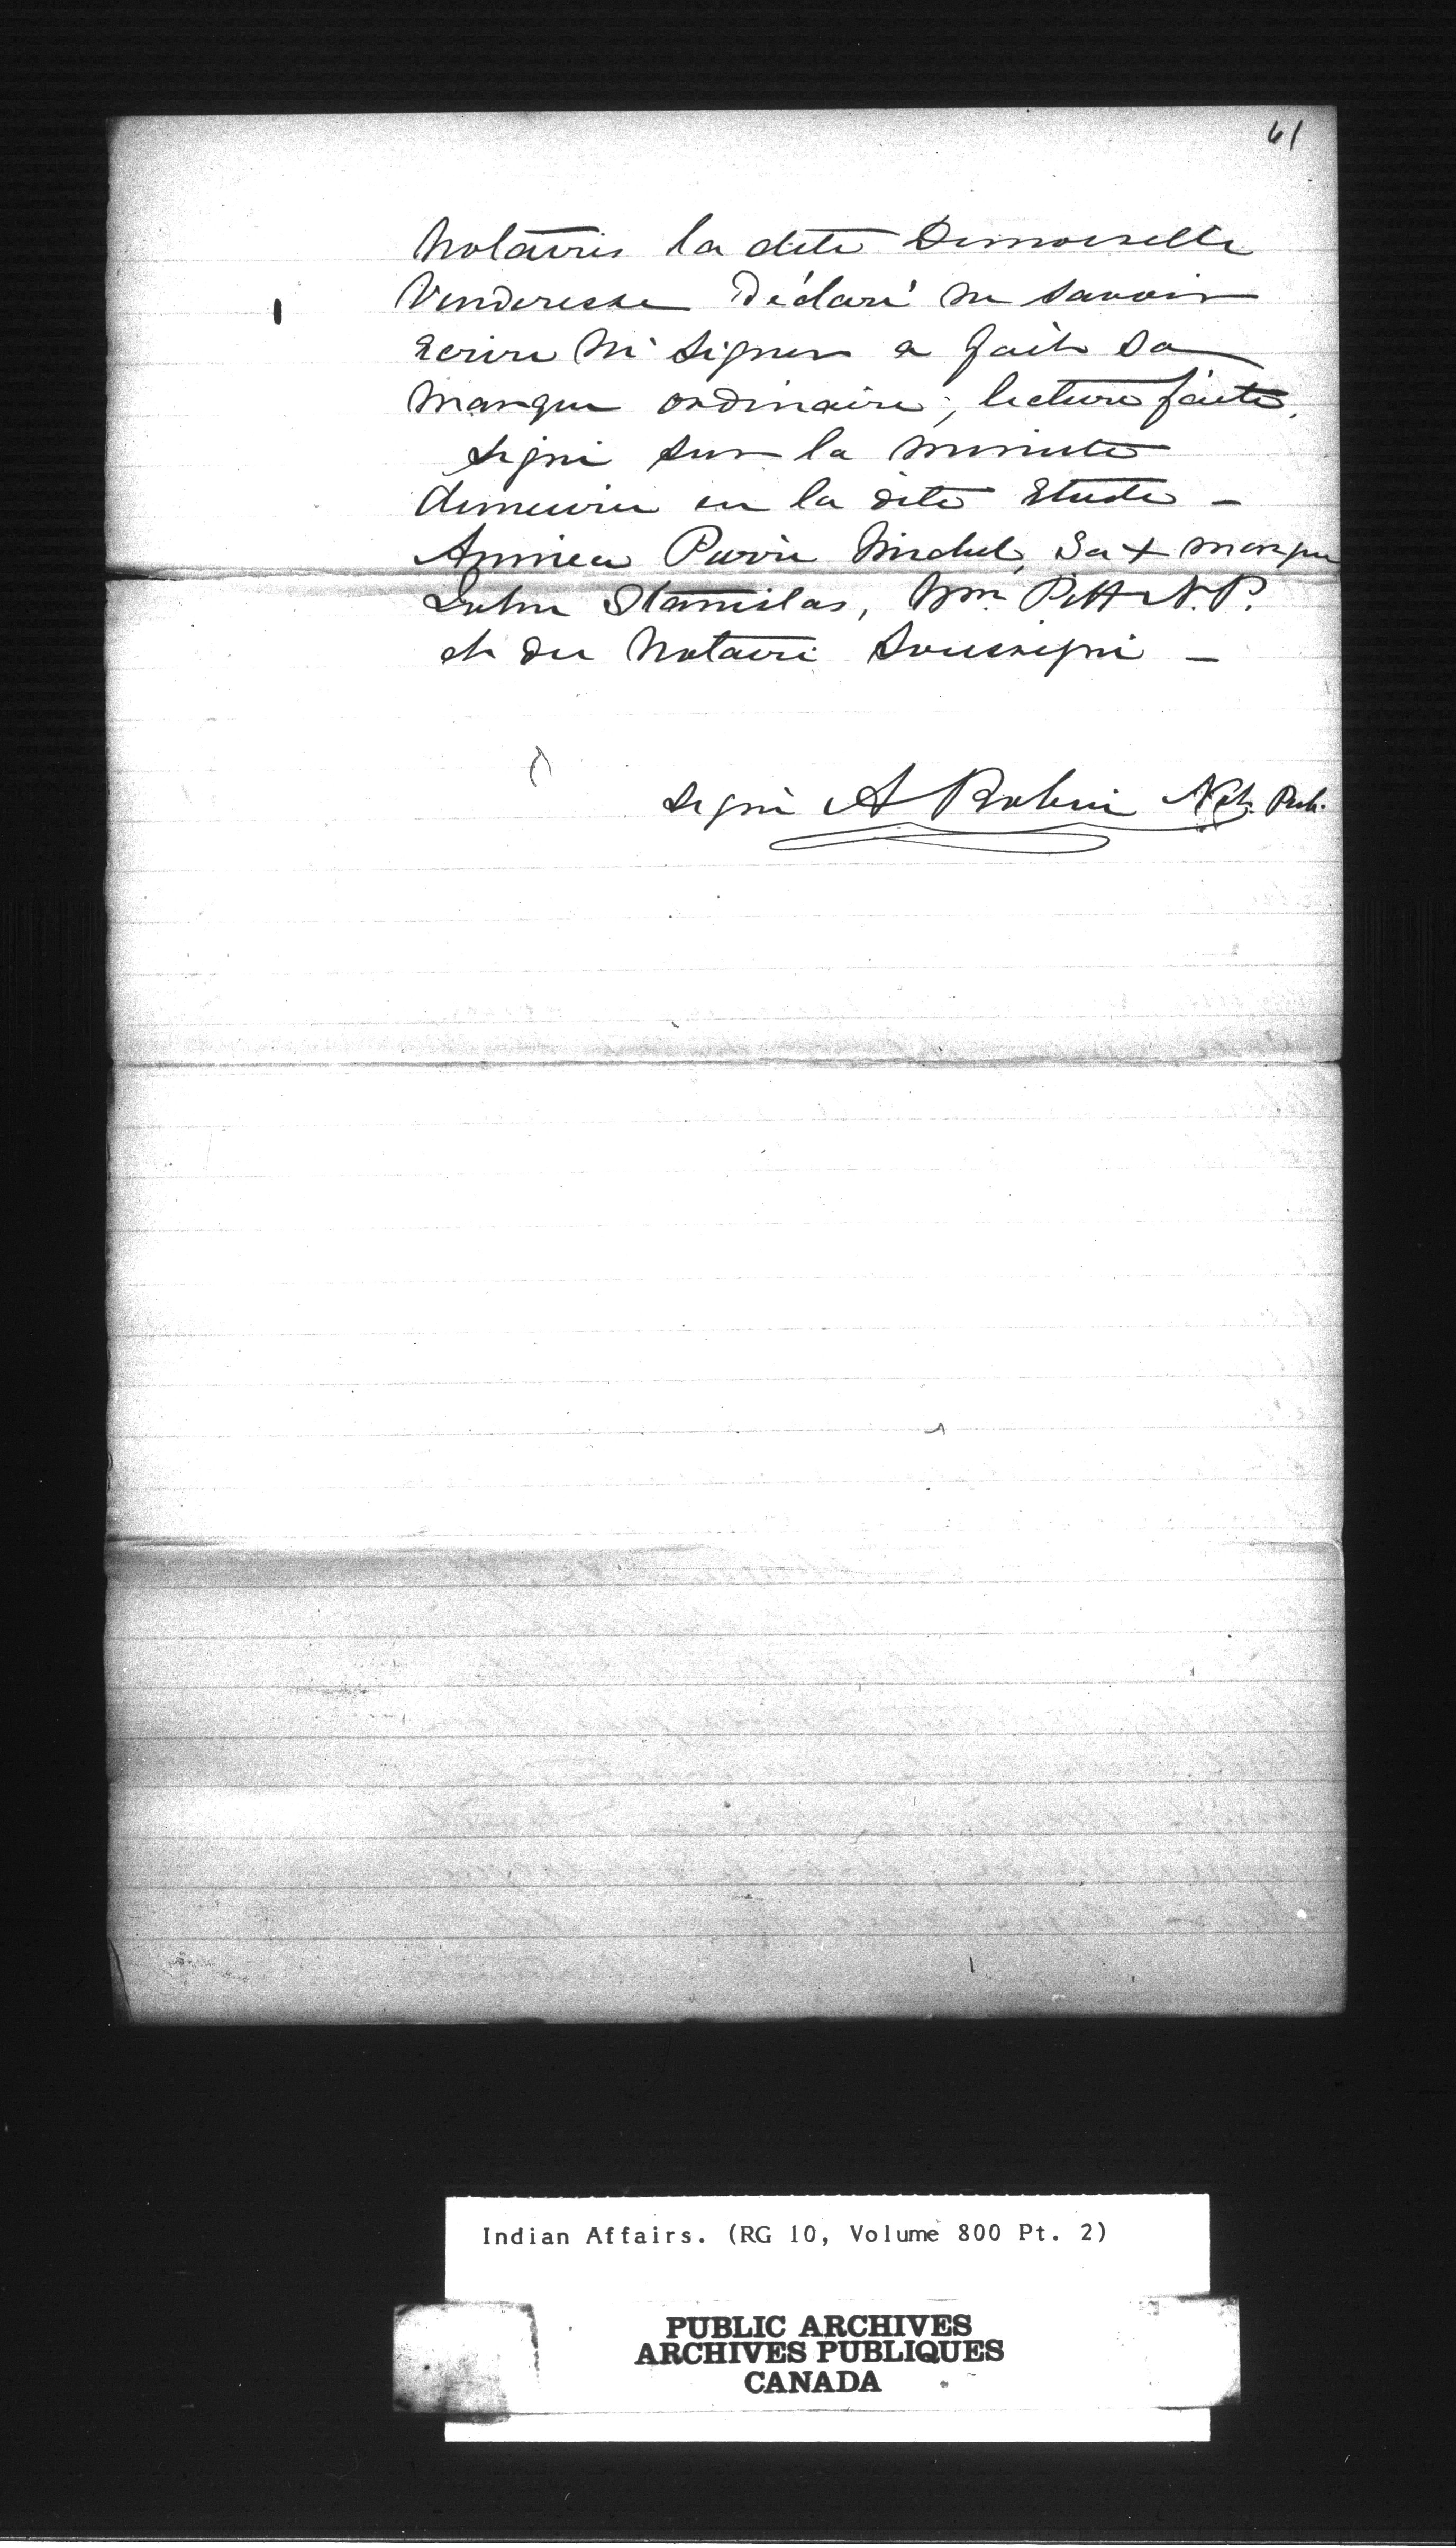 61
Notaires la dite Demoiselle
Venderesse Déclaré ne savoir
Ecrire Ni Signer a fait sa
marque ordinaire, lecture faite.
Signé sur la minute
demeurée en la dite Etude –
Pierre Michel, Sa + marque
Stanislas, Wm. Pitt N.P.
et du Notaire Soussigné –
Signé A Robin Not. Pub.
Indian Affairs. (RG 10, Volume 800 Pt. 2)
PUBLIC ARCHIVES
ARCHIVES PUBLIQUES
CANADA